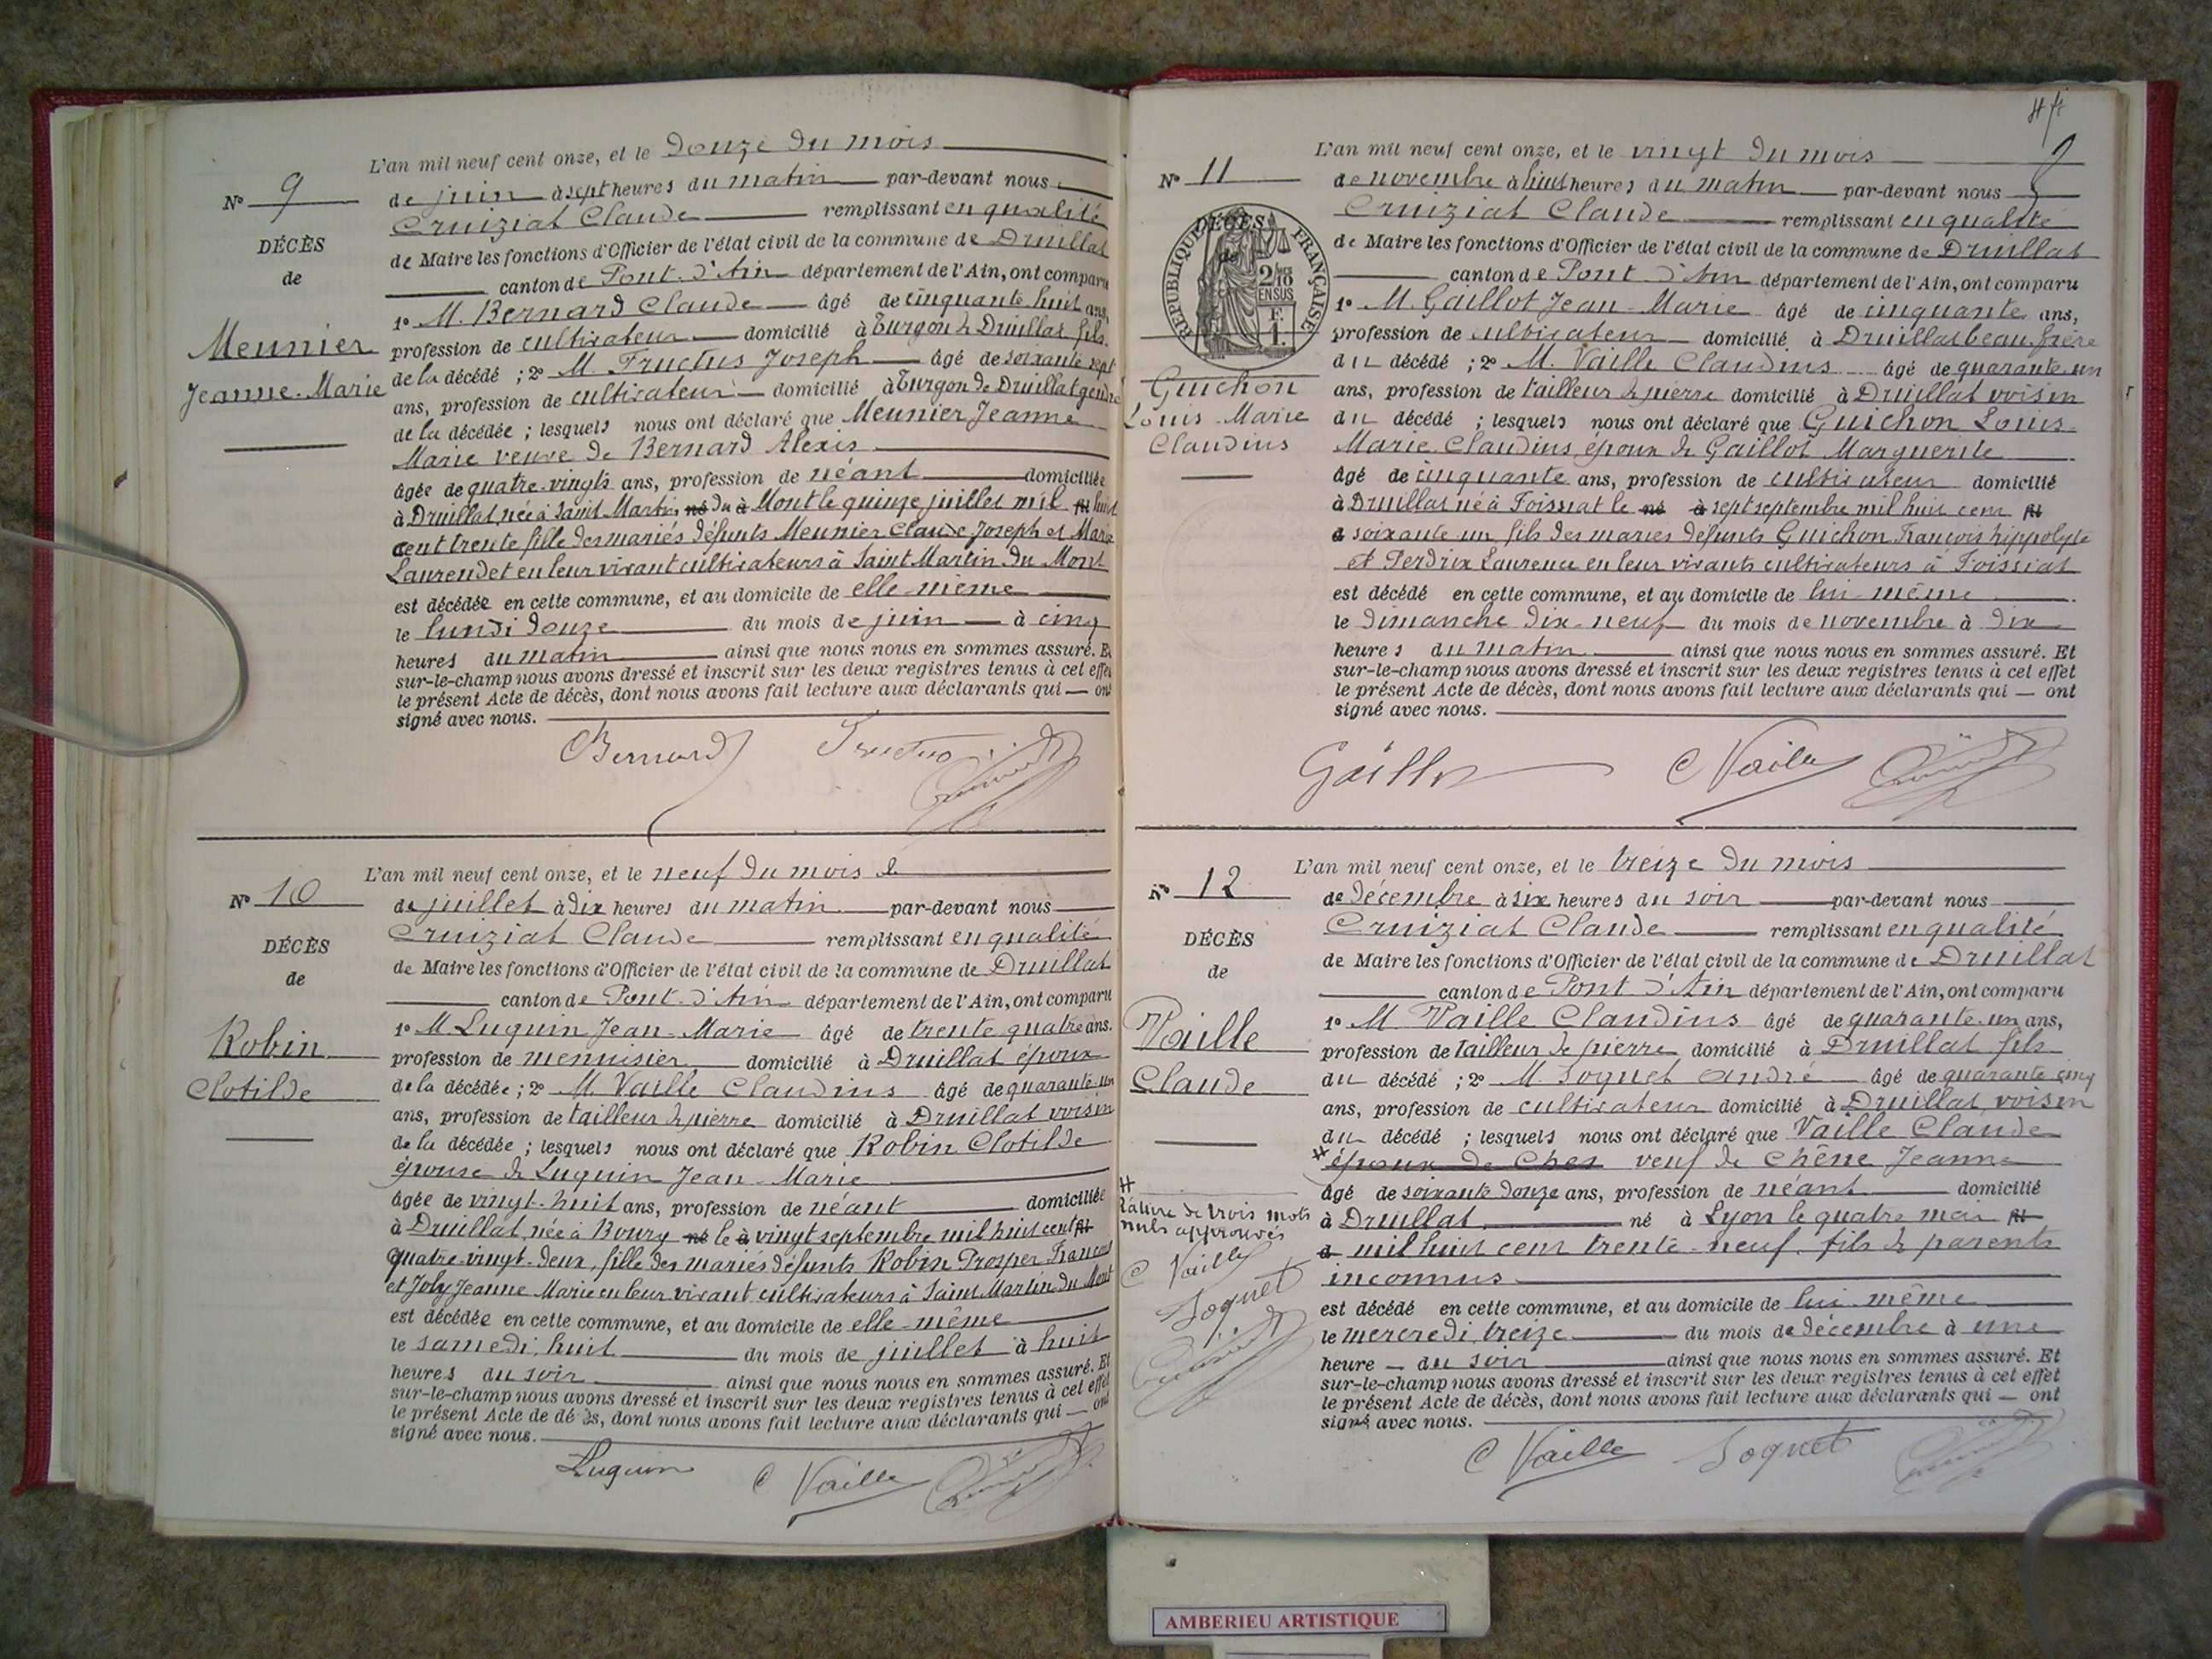 L'an mil neuf cent onze, et le douze du mois
N° 9
de juin à sept heures du matin par-devant nous
Cruiziat Claude remplissant en qualité
DÉCÈS
de Maire les fonctions d'Officier de l'état civil de la commune de Druillat
de
canton de Pont-d'Ain département de l'Ain, ont comparu
1° M. Bernard Claude âgé de cinquante huit ans,
Meunier
profession de cultivateur domicilié à Turgon de Druillat fils
de la décédé ; 2° M. Fructus Joseph âgé de soixante sept
Jeanne-Marie
ans, profession de cultivateur domicilié à Turgon de Druillat gendre
de la décédée ; lesquels nous ont déclaré que Meunier Jeanne
Marie veuve de Bernard Alexis
âgée de quatre-vingts ans, profession de néant domiciliée
à Druillat, née à Saint Martin né du à Mont le quinze juillet mil fil huit
cent trente fille des mariés défunts Meunier Claude Joseph et Marie
Laurendet en leur vivant cultivateurs à Saint Martin du Mont
est décédée en cette commune, et au domicile de elle-même
le lundi douze du mois de juin à cinq
heures du matin ainsi que nous nous en sommes assuré. Et
sur-le-champ nous avons dressé et inscrit sur les deux registres tenus à cet effet
le présent Acte de décès, dont nous avons fait lecture aux déclarants qui — ont
signé avec nous.
Bernard Fructus
L'an mil neuf cent onze, et le neuf du mois de
N° 10
de juillet à dix heures du matin par-devant nous
Cruiziat Claude remplissant en qualité
DÉCÈS
de Maire les fonctions d'Officier de l'état civil de la commune de Druillat
de
canton de Pont-d'Ain département de l'Ain, ont comparu
1° M. Luquin Jean-Marie âgé de trente quatre ans.
Robin
profession de menuisier domicilié à Druillat époux
de la décédée ; 2° M. Vaille Claudius âgé de quarante un
Clotilde
ans, profession de tailleur de pierre domicilié à Druillat voisin
de la décédée ; lesquels nous ont déclaré que Robin Clotilde
épouse de Luquin Jean-Marie
âgée de vingt-huit ans, profession de néant domiciliée
à Druillat, née à Bourg né le à vingt septembre mil huit cent fil
quatre-vingt-deux, fille des mariés défunts Robin Prosper François
et Joly Jeanne Marie en leur vivant cultivateurs à Saint Martin du Mont
est décédée en cette commune, et au domicile de elle-même
le samedi huit du mois de juillet à huit
heures du soir ainsi que nous nous en sommes assuré. Et
sur-le-champ nous avons dressé et inscrit sur les deux registres tenus à cet effet
le présent Acte de décès, dont nous avons fait lecture aux déclarants qui — ont
signé avec nous.
Luquin C Vaille
L'an mil neuf cent onze, et le vingt du mois
N° 11
de novembre à huit heures du matin par-devant nous
Cruiziat Claude remplissant en qualité
DÉCÈS
de
RÉPUBLIQUE FRANÇAISE
2/10 EN SUS
F. 1.
de Maire les fonctions d'Officier de l'état civil de la commune de Druillat
canton de Pont d'Ain département de l'Ain, ont comparu
1° M. Gaillot Jean-Marie âgé de cinquante ans,
profession de cultivateur domicilié à Druillat beau-frère
du décédé ; 2° M. Vaille Claudius âgé de quarante un
Guichon
ans, profession de tailleur de pierre domicilié à Druillat voisin
Louis-Marie
du décédé ; lesquels nous ont déclaré que Guichon Louis
Claudius
Marie Claudius, époux de Gaillot Marguerite
âgé de cinquante ans, profession de cultivateur domicilié
à Druillat né à Foissiat le né à sept septembre mil huit cent fil
a soixante un, fils des mariés défunts Guichon François hippolyte
et Perdrix Laurence en leur vivants cultivateurs à Foissiat
est décédé en cette commune, et au domicile de lui-même
le dimanche dix-neuf du mois de novembre à dix
heures du matin ainsi que nous nous en sommes assuré. Et
sur-le-champ nous avons dressé et inscrit sur les deux registres tenus à cet effet
le présent Acte de décès, dont nous avons fait lecture aux déclarants qui — ont
signé avec nous.
Gaillot C Vaille
L'an mil neuf cent onze, et le treize du mois
N° 12
de décembre à six heures du soir par-devant nous
Cruiziat Claude remplissant en qualité
DÉCÈS
de Maire les fonctions d'Officier de l'état civil de la commune de Druillat
de
canton de Pont d'Ain département de l'Ain, ont comparu
1° M. Vaille Claudius âgé de quarante-un ans,
Vaille
profession de tailleur de pierre domicilié à Druillat fils
Claude
du décédé ; 2° M. Soquet André âgé de quarante cinq
ans, profession de cultivateur domicilié à Druillat, voisin
du décédé ; lesquels nous ont déclaré que Vaille Claude
époux de Ches veuf de Chêne Jeanne
âgé de soixante douze ans, profession de néant domicilié
Rature de trois mots
nuls approuvés
C Vaille
Soquet
à Druillat né à Lyon le quatre mai fil
a mil huit cent trente-neuf, fils de parents
inconnus
est décédé en cette commune, et au domicile de lui-même
le mercredi treize du mois de décembre à une
heure — du soir ainsi que nous nous en sommes assuré. Et
sur-le-champ nous avons dressé et inscrit sur les deux registres tenus à cet effet
le présent Acte de décès, dont nous avons fait lecture aux déclarants qui — ont
signé avec nous.
C Vaille Soquet
AMBERIEU ARTISTIQUE